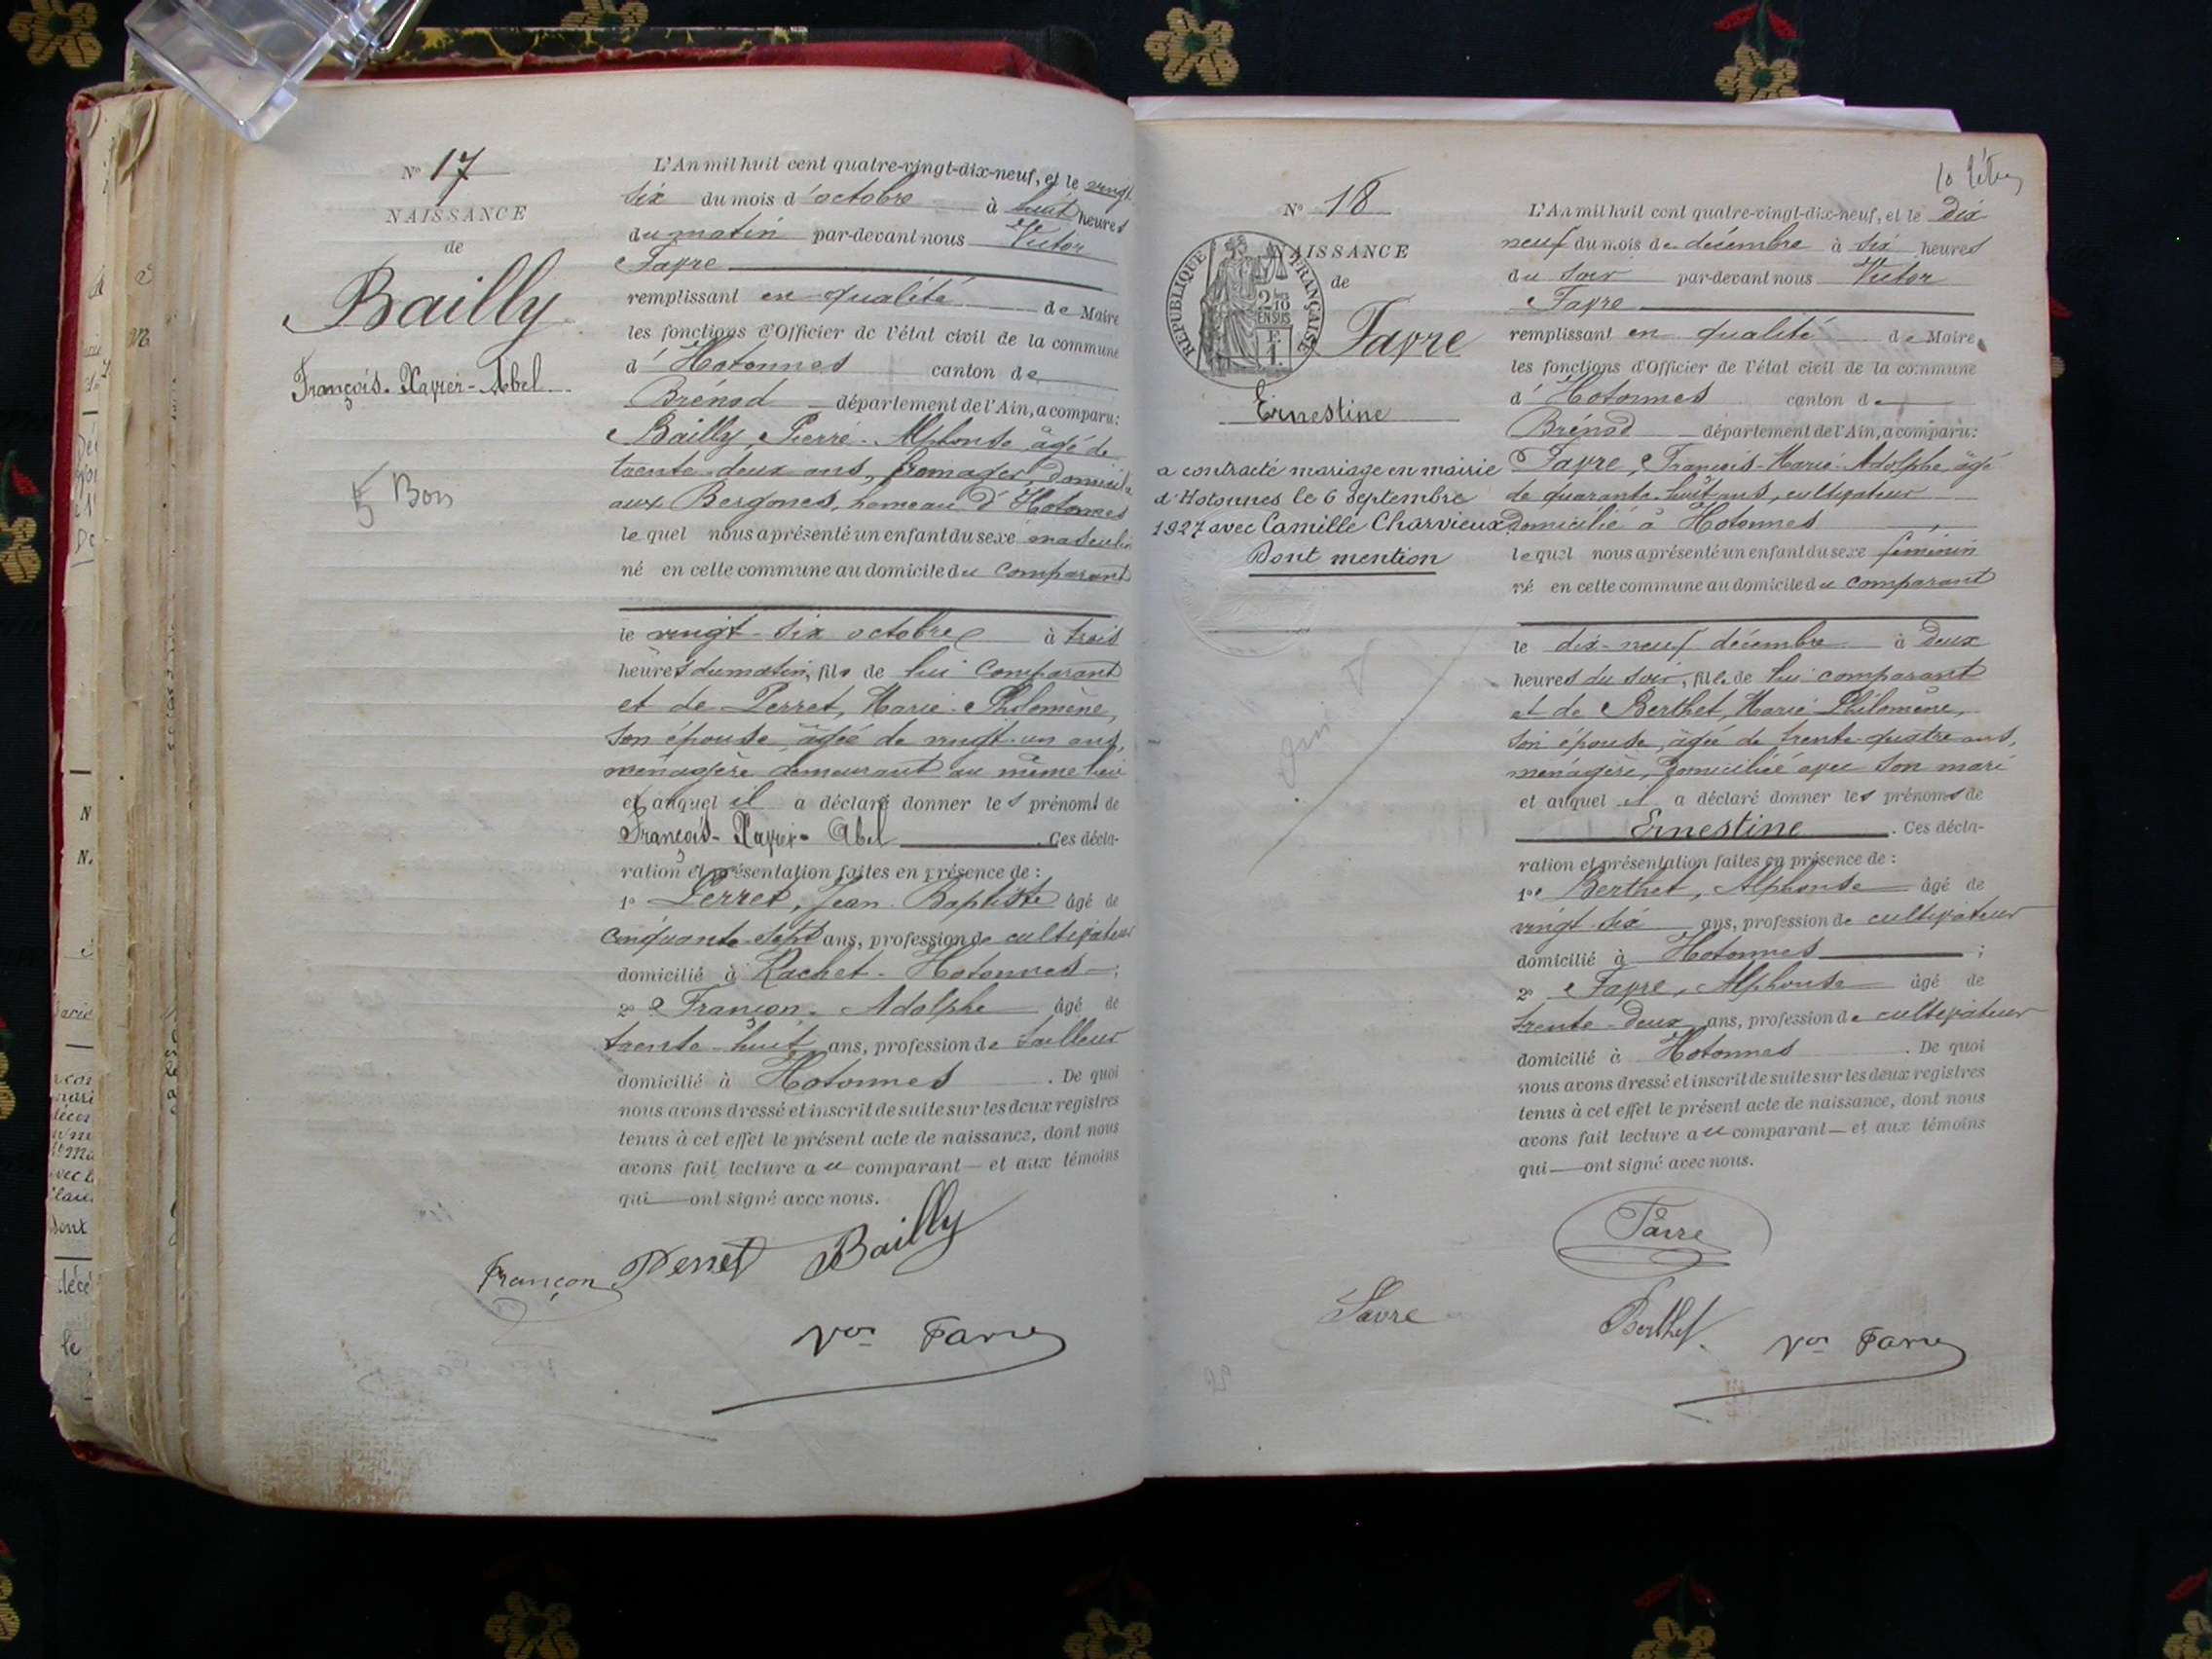 Nº 17
NAISSANCE
de
Bailly
François-Xavier-Abel
Bon
L'An mil huit cent quatre-vingt-dix-neuf, et le vingt
six du mois d'octobre à huit heures
du matin par-devant nous Victor
Favre
remplissant en qualité de Maire
les fonctions d'Officier de l'état civil de la commune
d'Hotonnes canton de
Brénod département de l'Ain, a comparu:
Bailly, Pierre-Alphonse âgé de
trente-deux ans, fromager, domicilié
aux Bergones, hameau d'Hotonnes
lequel nous a présenté un enfant du sexe masculin
né en cette commune au domicile du comparant
le vingt-six octobre à trois
heures du matin, fils de lui comparant
et de Perret, Marie-Philomène,
son épouse, âgée de vingt-un ans,
ménagère demeurant au même lieu
et auquel il a déclaré donner les prénoms de
François-Xavier-Abel. Ces décla-
ration et présentation faites en présence de :
1º Perret, Jean-Baptiste âgé de
cinquante-sept ans, profession de cultivateur
domicilié à Rachet-Hotonnes ;
2º Françon, Adolphe âgé de
trente-huit ans, profession de tailleur
domicilié à Hotonnes. De quoi
nous avons dressé et inscrit de suite sur les deux registres
tenus à cet effet le présent acte de naissance, dont nous
avons fait lecture au comparant — et aux témoins
qui — ont signé avec nous.
Françon Perret Bailly
Vor Favre
10 
Nº 18
NAISSANCE
de
REPUBLIQUE FRANÇAISE
2/10 EN SUS
F. 1.
Favre
Ernestine
a contracté mariage en mairie
d'Hotonnes le 6 Septembre
1927 avec Camille Charvieux.
Dont mention
L'An mil huit cent quatre-vingt-dix-neuf, et le dix
neuf du mois de décembre à six heures
du soir par-devant nous Victor
Favre
remplissant en qualité de Maire
les fonctions d'Officier de l'état civil de la commune
d'Hotonnes canton de
Brénod département de l'Ain, a comparu:
Favre, François-Marie-Adolphe, âgé
de quarante-huit ans, cultivateur
domicilié à Hotonnes
lequel nous a présenté un enfant du sexe féminin
né en cette commune au domicile du comparant
le dix-neuf décembre à deux
heures du soir, fille de lui comparant
et de Berthet, Marie Philomène,
son épouse, âgée de trente-quatre ans,
ménagère, domiciliée avec son mari
et auquel il a déclaré donner les prénoms de
Ernestine. Ces décla-
ration et présentation faites en présence de :
1º Berthet, Alphonse âgé de
vingt-six ans, profession de cultivateur
domicilié à Hotonnes ;
2º Favre, Alphonse âgé de
trente-deux ans, profession de cultivateur
domicilié à Hotonnes. De quoi
nous avons dressé et inscrit de suite sur les deux registres
tenus à cet effet le présent acte de naissance, dont nous
avons fait lecture au comparant — et aux témoins
qui — ont signé avec nous.
Favre
Favre Berthet Vor Favre